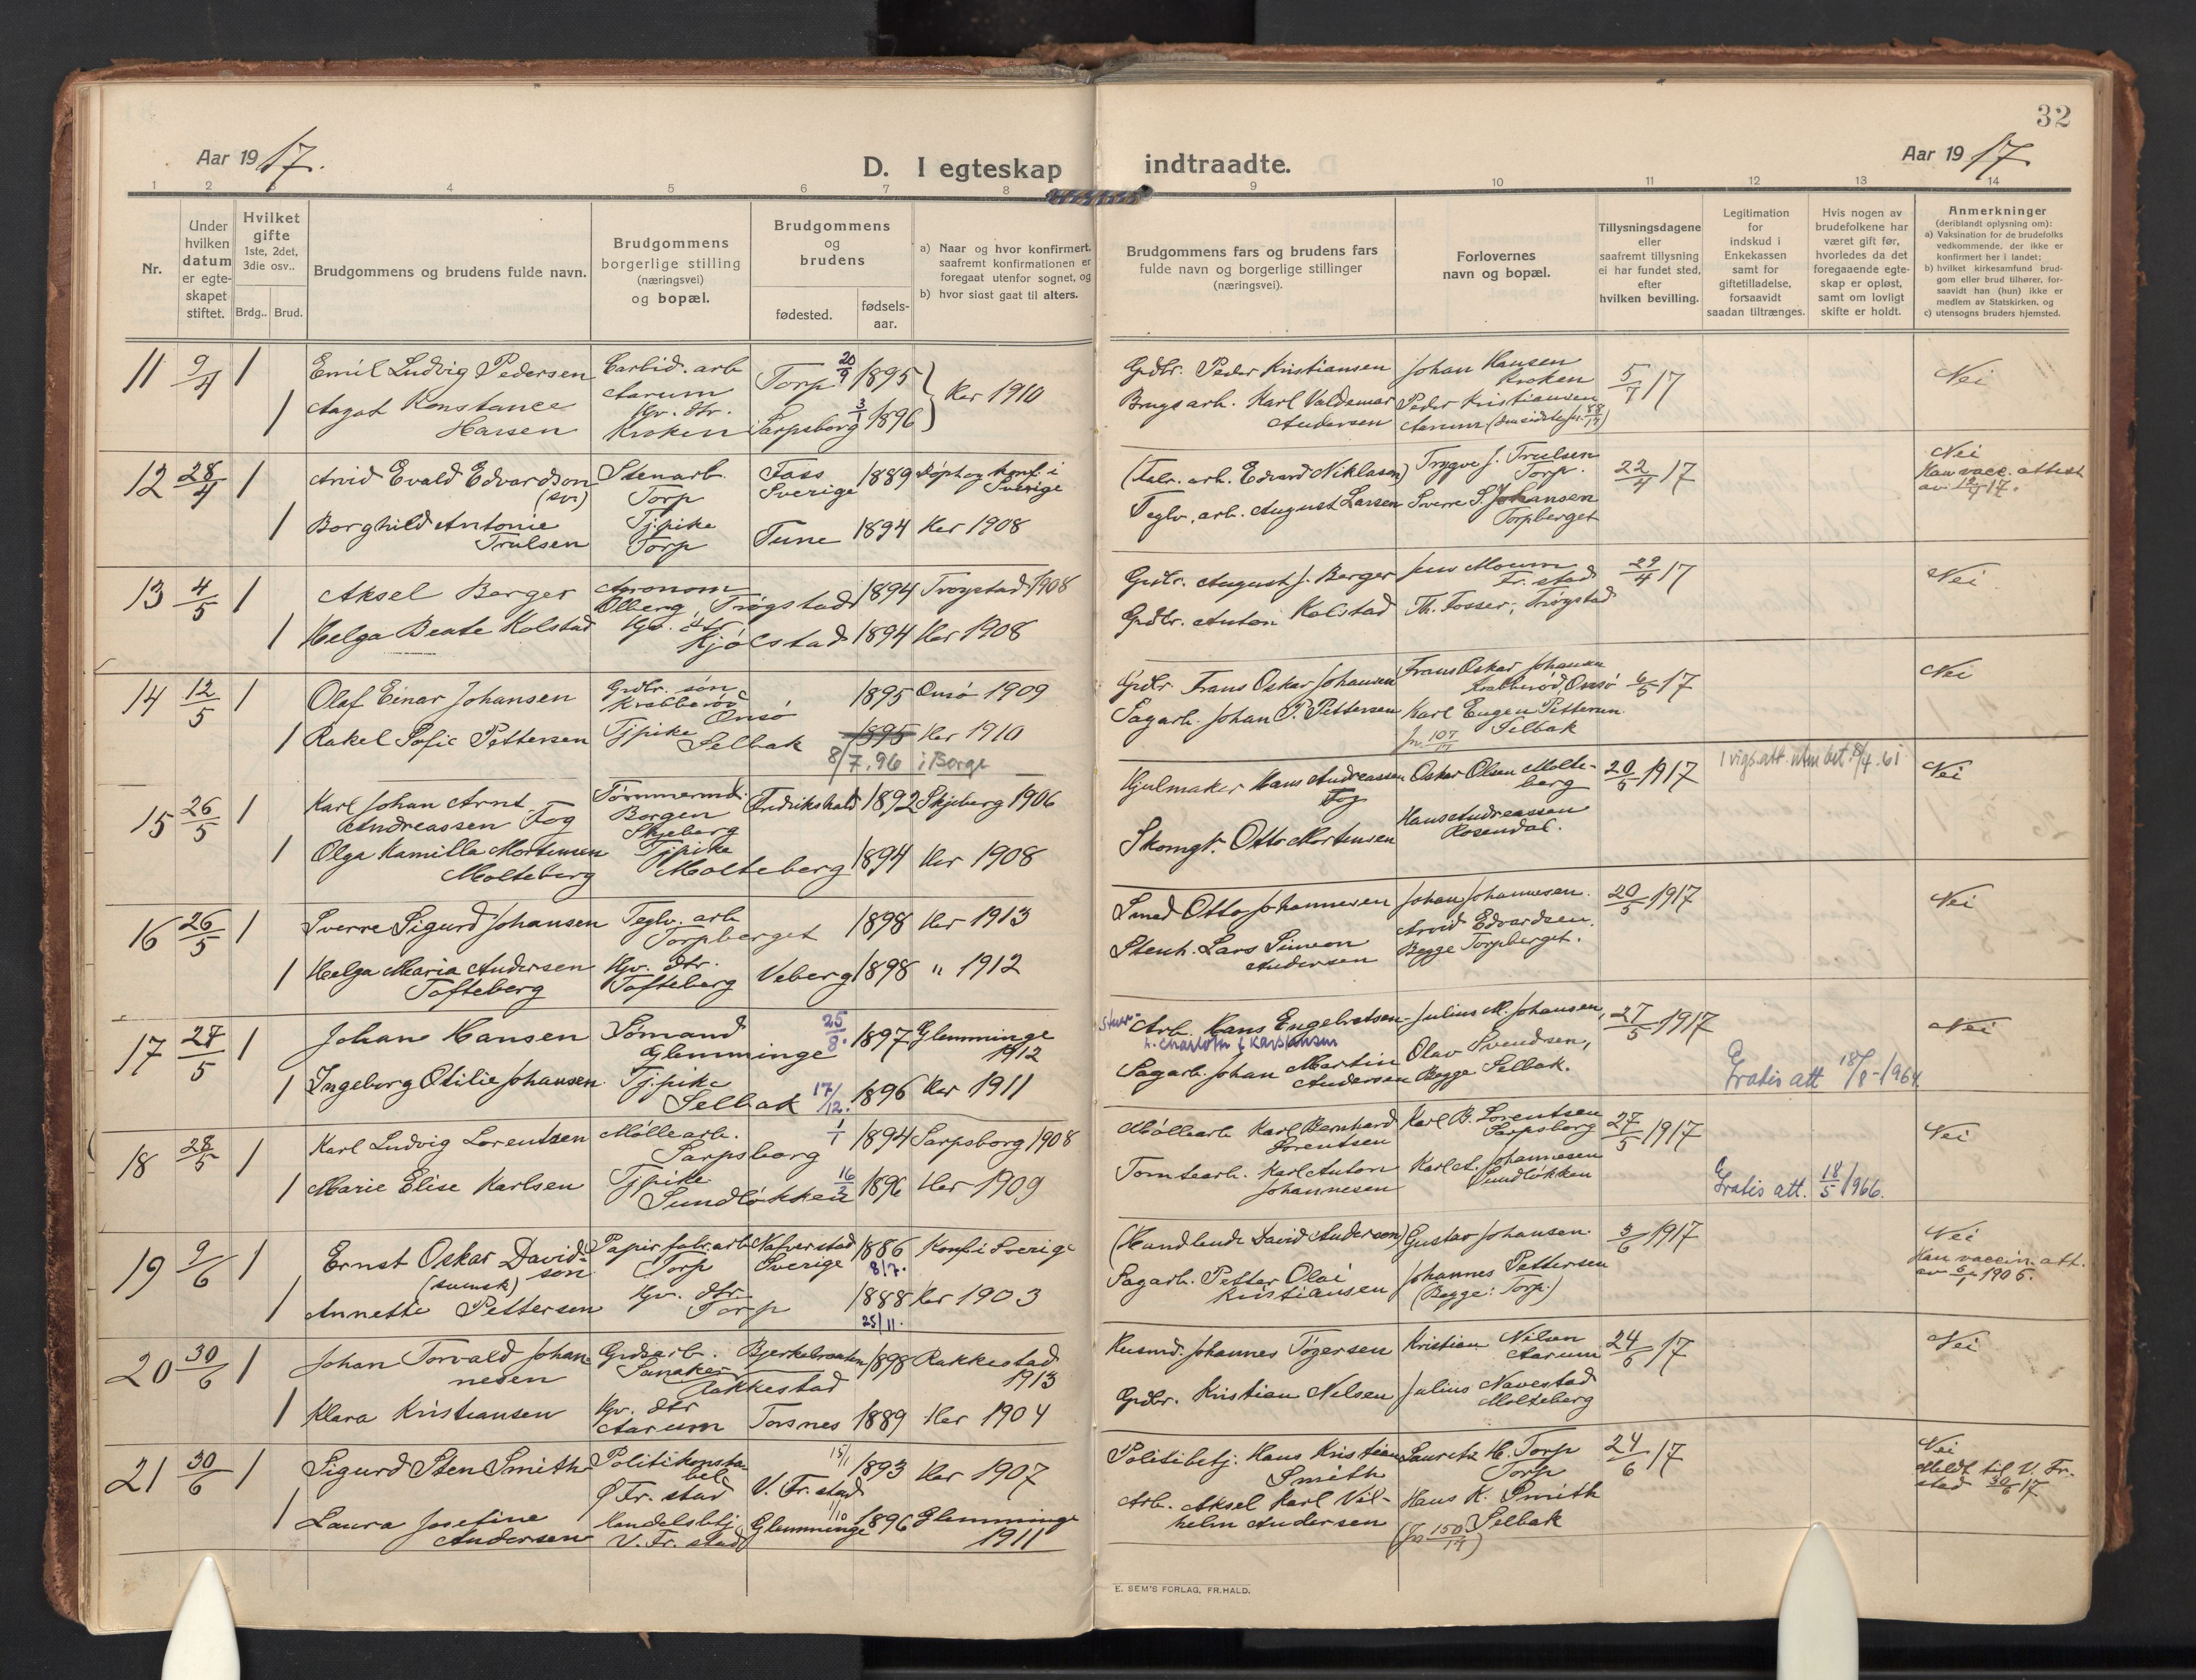 32
Aar 1917.
D. I egteskap indtraadte.
Aar 1917
1 2 3 4 5 6 7 8 9 10 11 12 13 14
Nr.
Under hvilken datum er egteskapet stiftet.
Hvilket gifte 1ste, 2det, 3die osv..
Brdg.. Brud.
Brudgommens og brudens fulde navn.
Brudgommens borgerlige stilling (næringsvei) og bopæl.
Brudgommens og brudens
fødested.
fødsels-aar.
a) Naar og hvor konfirmert, saafremt konfirmationen er foregaat utenfor sognet, og
b) hvor sidst gaat til alters.
Brudgommens fars og brudens fars fulde navn og borgerlige stillinger (næringsvei).
Forlovernes navn og bopæl.
Tillysningsdagene eller saafremt tillysning ei har fundet sted, efter hvilken bevilling.
Legitimation for indskud i Enkekassen samt for giftetilladelse, forsaavidt saadan tiltrænges.
Hvis nogen av brudefolkene har været gift før, hvorledes da det foregaaende egteskap er opløst, samt om lovligt skifte er holdt.
Anmerkninger (deriblandt oplysning om):
a) Vaksination for de brudefolks vedkommende. der ikke er konfirmert her i landet;
b) hvilket kirkesamfund brudgom eller brud tilhører, forsaavidt han (hun) ikke er medlem av Statskirken, og
c) utensogns bruders hjemsted.
11 9/4 1 Emil Ludvig Pedersen Carbid. arb Aarum Torp 20/9 1895 } Her 1910 Grdbr. Peder Kristiansen Johan Hansen Kroken 5/7 17 Nei
1 Aagot Konstance Hansen Hv. dtr. Kroken Sarpsborg 3/1 1896 Brugsarb. Karl Valdemar Andersen Peder Kristiansen Aarum
12 28/4 1 Arvid Evald Edvardson (sv.) Stenarb. Torp Foss Sverige 1889 Døpt og konf. i Sverige (Fabr. arb. Edvard Niklason) Trygve J. Trulsen Torp. 22/4 17 Nei
Hans vacc. attest av
1 Borghild Antonie Trulsen Tj.pike Torp Tune 1894 Her 1908 Teglv. arb. August Larsen Sverre S. Johansen Torpberget
13 4/5 1 Aksel Berger Agronom Ølberg, Trøgstad 1894 Trøgstad 1908 Grdbr. August J. Berger Jens Moum Fr. stad 29/4 17 Nei
1 Helga Beate Kolstad Hv. dtr Kjølstad 1894 Her 1908 Grdbr. Anton Kolstad Th. Fosser, Trøgstad
14 12/5 1 Olaf Einar Johansen Grdbr. søn Krabberød Onsø 1895 Onsø 1909 Grdbr Frans Oskar Johansen Frans Oskar Johansen Krabberød, Onsø 6/5 17 Nei
1 Rakel Sofie Pettersen Tjpike Selbak 1895 Her 1910 Sagarb. Johan P. Pettersen Karl Eugen Pettersen Selbak
8/7.96 i Borge
Jn. 107/17
15 26/5 1 Karl Johan Arnt Andreassen Fog Tømmermd. Borgen Skjeberg Fredrikshald 1892 Skjeberg 1906 Hjulmaker Hans Andreassen Fog Oskar Olsen Molteberg 20/5 1917 1 vigs.att. utm bet. 8/4.61 Nei
1 Olga Kamilla Mortensen Molteberg Tjpike Molteberg 1894 Her 1908 Skomgr. Otto Mortensen Hans Andreassen Rosendal.
16 26/5 1 Sverre Sigurd Johansen Teglv. arb Torpberget 1898 Her 1913 Smed Otto Johannesen Johan Johannesen. 20/5 1917 Nei
1 Helga Maria Andersen Tofteberg Hv. dtr. Tofteberg Veberg 1898 " 1912 Stenh. Lars Simeon Andersen Arvid Edvardsen. Begge Torpberget.
17 27/5 1 Johan Hansen Sømand Glemminge 25/8. 1897 Glemminge 1912 Arb. Hans Engebretsen Julius M. Johansen, 27/5 1917 Nei
1 Ingeborg Otilie Johansen Tj.pike Selbak 17/12. 1896 Her 1911 Sagarb. Johan Martin Andersen Olav Svendsen, Begge Selbak.
Gratis att 18/8-1964
18 28/5 1 Karl Ludvig Lorentzen Møllearb. Sarpsborg 1/1 1894 Sarpsborg 1908 Møllearb Karl Bernhard Lorentsen Karl B. Lorentsen Sarpsborg 27/5 1917 Nei
1 Marie Elise Karlsen Tjpike Sundløkken 16/2 1896 Her 1909 Tomtearb. Karl Anton Johannesen Karl A. Johannesen Sundløkken
Gratis att. 18/5 1966.
19 9/6 1 Ernst Oskar Davidson (svensk) Papirfabr.arb Torp Nafverstad Sverige 1886 8/7. Konf i Sverige (Handlende David Anderson) Gustav Johansen. 3/6 1917 Nei
Han vaccin. att. av 1905.
1 Annette Pettersen Hv. dtr. Torp 1888 25/11. Her 1903 Sagarb. Petter Olai Kristiansen Johannes Pettersen (Begge: Torp.)
20 30/6 1 Johan Torvald Johannesen Grdsarb. Sanaker Rakkestad Bjerkebraaten 1898 Rakkestad 1913 Husmd. Johannes Tøgersen Kristian Nilsen Aarum 24/6 17 Nei
1 Klara Kristiansen Hv. dtr Aarum Torsnes 1889 Her 1904 Grdbr. Kristian Nilsen Julius Navestad Molteberg
21 30/6 1 Sigurd Sten Smith Politikonstabel Ø Fr. stad V. Fr. stad 15/1 1893 Her 1907 Politibetj. Hans Kristian Smith Lauretz H. Torp Torp 24/6 17 Nei
Meldt til V. Fr. stad 30/6 17
1 Laura Josefine Andersen Handelsbetj V. Fr. stad Glemminge 1/10 1896 Glemminge 1911 Arb. Aksel Karl Vilhelm Andersen Hans K. Smith Selbak
(Jn. 150/17)
E. SEM'S FORLAG, FR.HALD.